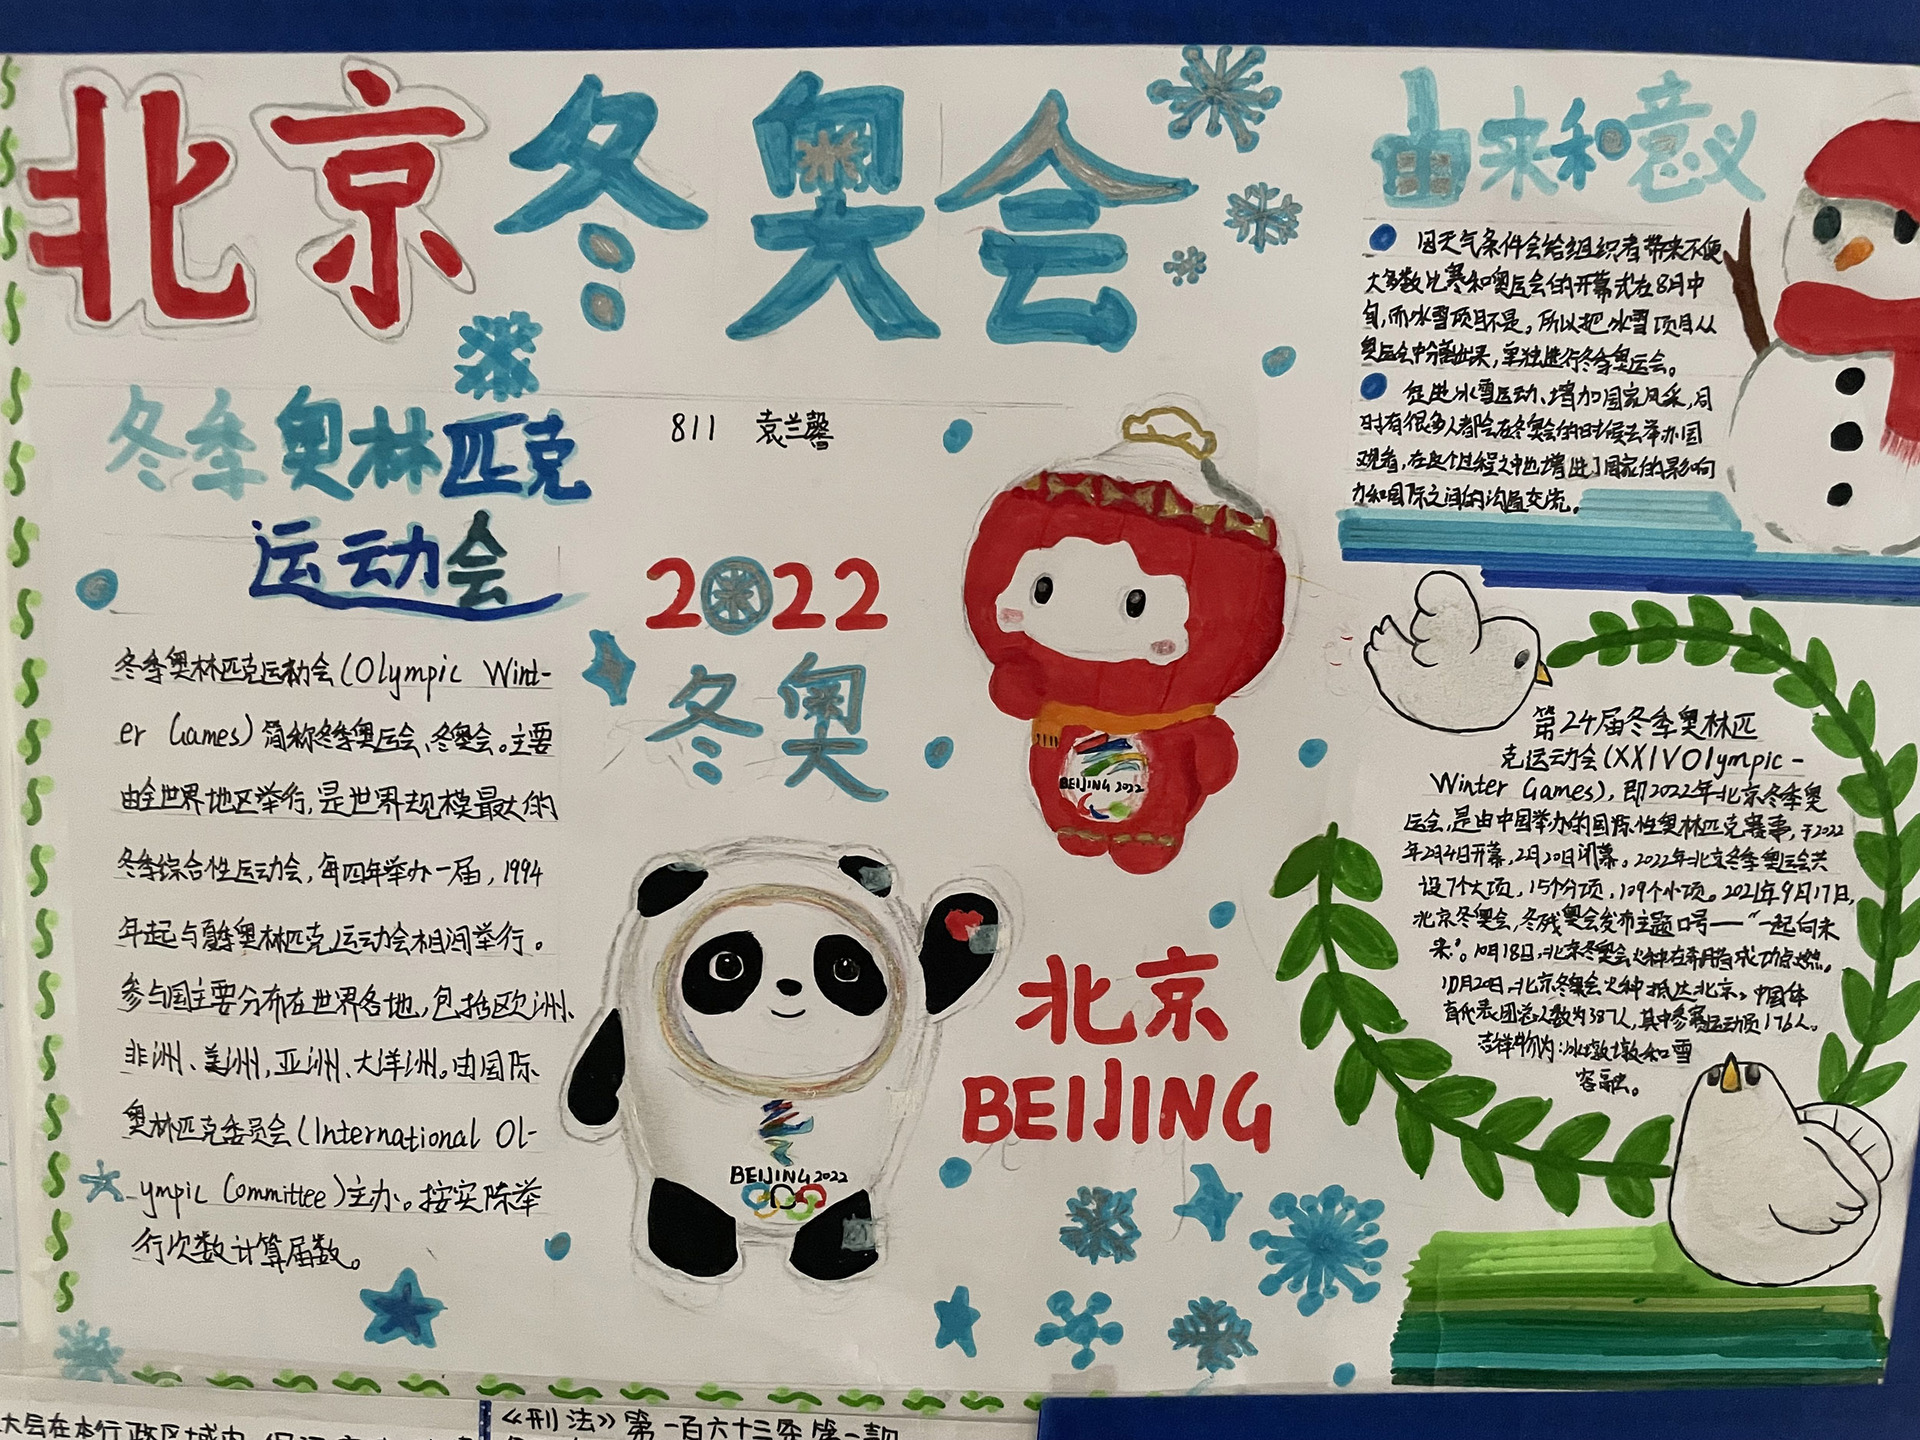 北京冬奥会
冬季奥林匹克
运动会
811 袁兰馨
冬季奥林匹克运动会(Olympic Wint-
er Games)简称冬季奥运会、冬奥会。主要
由全世界地区举行,是世界规模最大的
冬季综合性运动会,每四年举办一届,1994
年起与夏季奥林匹克运动会相间举行。
参与国主要分布在世界各地,包括欧洲、
非洲、美洲,亚洲、大洋洲。由国际
奥林匹克委员会(International Ol-
ympic Committee)主办。按实际举
行次数计算届数。
2022
冬奥
BEIJING 2022
BEIJING 2022
北京
BEIJING
由来和意义
因天气条件会给组织者带来不便
大多数比赛和奥运会的开幕式在8月中
旬,而冰雪项目不是。所以把冰雪项目从
奥运会中分离出来,单独进行冬季奥运会。
促进冰雪运动、增加国家风采,同
时有很多人都会在冬奥会的时候去举办国
观看,在这个过程之中也增进了国家的影响
力和国际之间的沟通交流。
第24届冬季奥林匹
克运动会(XXIVOlympic-
Winter Games),即2022年北京冬季奥
运会,是由中国举办的国际性奥林匹克赛事,于2022
年2月4日开幕,2月20日闭幕。2022年北京冬季奥运会共
设7个大项,15个分项,109个小项。2021年9月17日,
北京冬奥会,冬残奥会发布主题口号——“一起向未
来”。10月18日,北京冬奥会火种在希腊成功点燃。
10月20日,北京冬奥会火种抵达北京。中国体
育代表团总人数为387人,其中参赛运动员176人。
吉祥物为:冰墩墩和雪
容融。
大会在本行政区域内
《刑法》第一百六十三条第一款